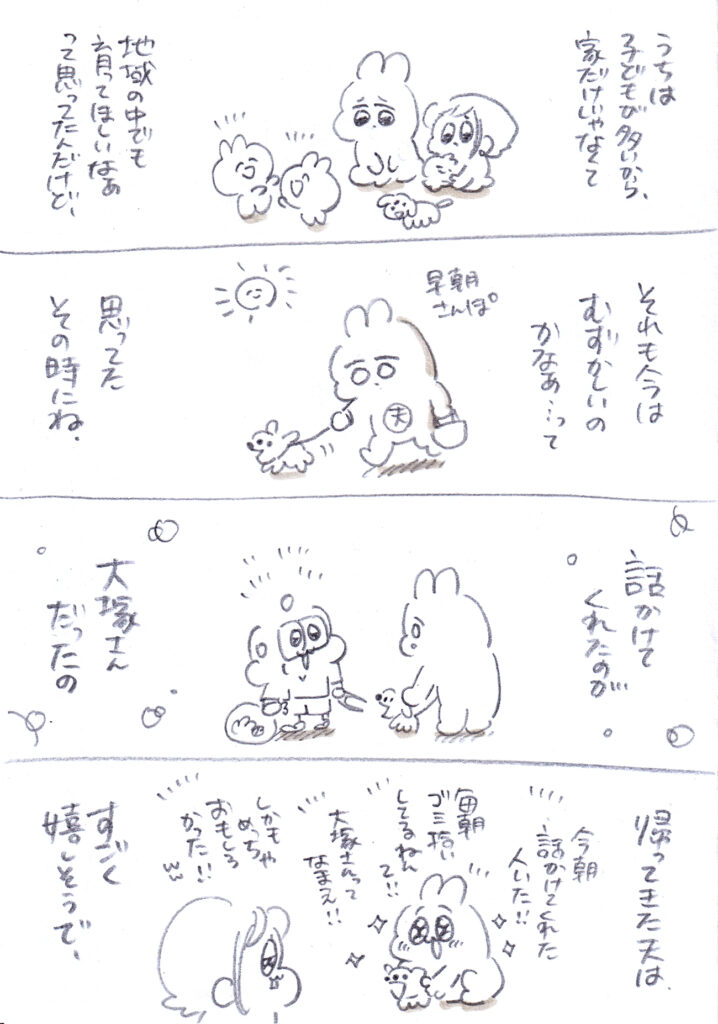 うちは
子どもが多いから、
家だけじゃなくて
地域の中でも
育ってほしいなぁ
って思ってたんだけど、
それも今は
むずかしいの
かなぁ…って
早朝
さんぽ
夫
思ってた
その時にね、
話かけて
くれたのが…
大塚さん
だったの
帰ってきた夫は、
今朝
話かけてくれた
人いた!!
毎朝
ゴミ拾い
してるねん
て!!
大塚さんって
なまえ!!
しかも
めっちゃ
おもしろ
かった!!
すごく
嬉しそうで、